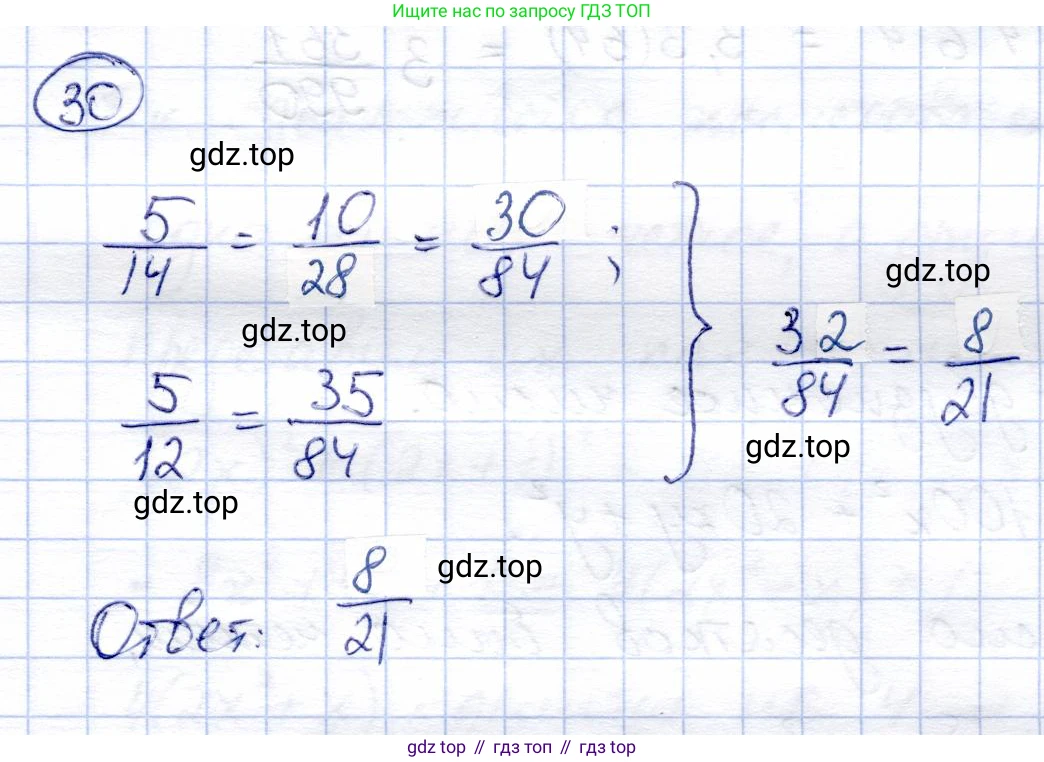 Ищите нас по запросу ГДЗ ТОП
30
gdz.top
5/14 = 10/28 = 30/84 ;
gdz.top
32/84 = 8/21
gdz.top
5/12 = 35/84
gdz.top
gdz.top
Ответ: 8/21
gdz.top
gdz top // гдз топ // gdz top